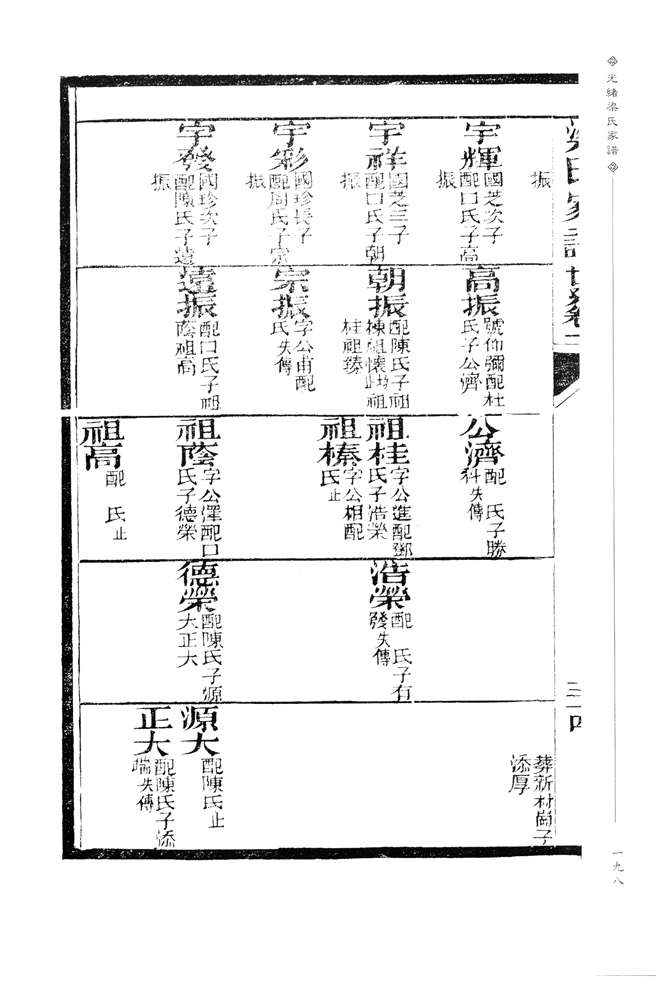 光緒梁氏家譜
一九八
梁氏家譜世系卷二
三十四
振
宇輝
國芝次子
配口氏子高
振
宇祥
國芝三子
配口氏子朝
振
宇彩
國珍長子
配周氏子宗
振
宇發
國珍次子
配陳氏子遠
振
高振
號仰彌配杜
氏子公濟
朝振
配陳氏子祖
棟祖懷此祖
桂祖榛
宗振
字公甫配
氏失傳
遠振
配口氏子祖
蔭祖高
公濟
配 氏子勝
科失傳
祖桂
字公進配鄧
氏子浩榮
祖榛
字公相配
氏止
祖蔭
字公澤配口
氏子德榮
祖高
配 氏止
浩榮
配 氏子有
發失傳
德榮
配陳氏子源
大正大
葬新村崗子
添厚
源大
配陳氏止
正大
配陳氏子添
端失傳